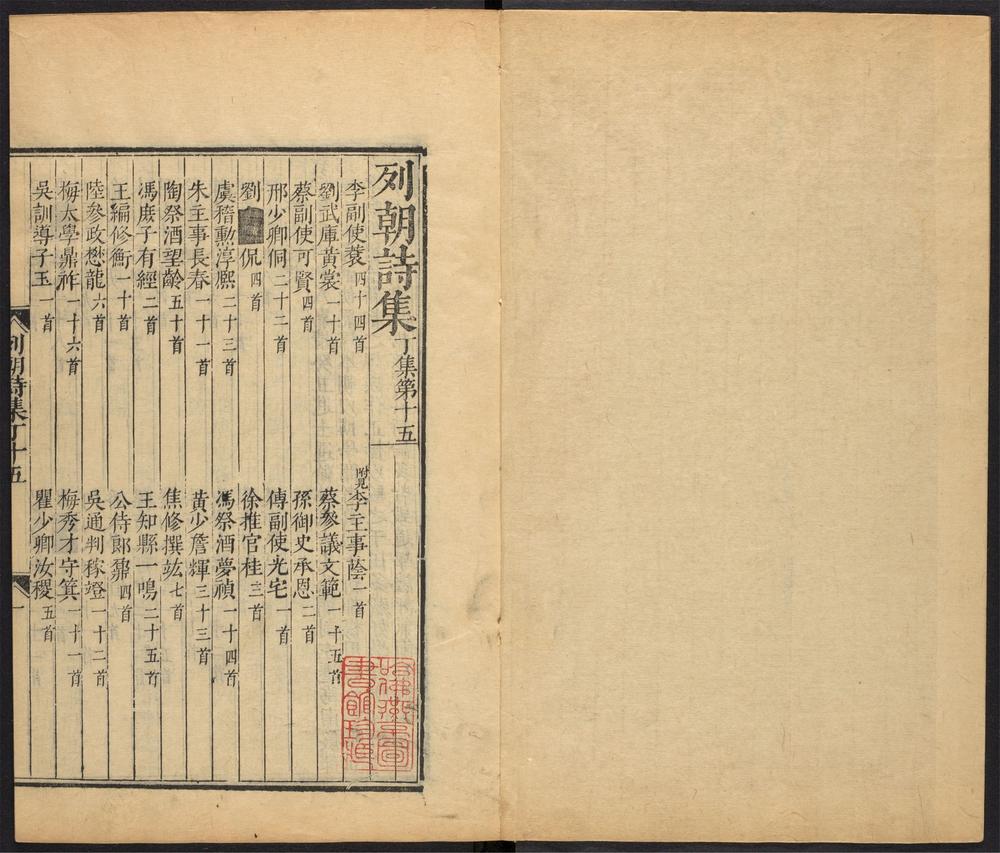 列朝詩集丁集第十五
李副使蓘四十四首　附見李主事蔭一首
劉武庫黃裳一十首　蔡參議文範一十五首
蔡副使可賢四首　孫御史承恩二首
邢少卿侗二十二首　傅副使光宅一首
劉　侃四首　徐推官桂三首
虞稽勳淳熙二十三首　馮祭酒夢禎一十四首
朱主事長春一十一首　黃少詹輝三十三首
陶祭酒望齡五十首　焦修撰竑七首
馮庶子有經二首　王知縣一鳴二十五首
王編修衡一十首　公侍郎鼐四首
陸參政懋龍六首　吳通判稼竳一十二首
梅太學鼎祚一十六首　梅秀才守箕一十一首
吳訓導子玉一首　瞿少卿汝稷五首
列朝詩集丁十五
一
哈佛燕京圖書館珍藏